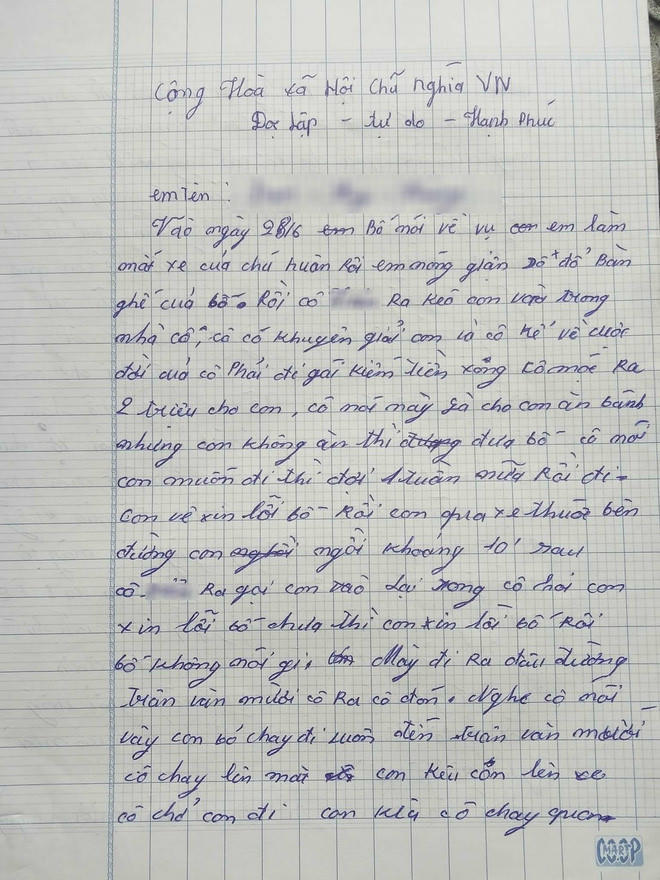 Cộng Hoà xã Hội chũ nghĩa VN
Độc Lập - tự do - Hạnh Phúc
em Tên :
Vào ngày 28/6 em Bố nói về vụ con em làm
mất xe của chú huân Rồi em nóng giận xô + đổ Bàn
ghế của bố. Rồi cô Ra Kéo con vào trong
nhà cô, cô có khuyên giải con là cô kể về cuộc
đời của cô Phải đi gái Kiếm tiền xong cô móc Ra
2 triệu cho con, cô nói này là cho con ăn bánh
nhưng con không ăn thì đưa bố cô nói
con muốn đi thì đợi 1 tuần nữa Rồi đi -
con về xin lỗi bố Rồi con qua xe thuốc bên
đường con ngồi khoảng 10' sau
cô Ra gọi con vào lại xong cô hỏi con
xin lỗi bố chưa thì con xin lỗi bố Rồi
bố không nói gì. Mày đi Ra đầu đường
Trần văn mười cô Ra cô đón. Nghe cô nói
vậy con bỏ chạy đi luôn đến trần văn mười
cô chạy lên mà con kêu cồn lên xe
cô chở con đi con kêu cô chạy quan
CO.OP MART